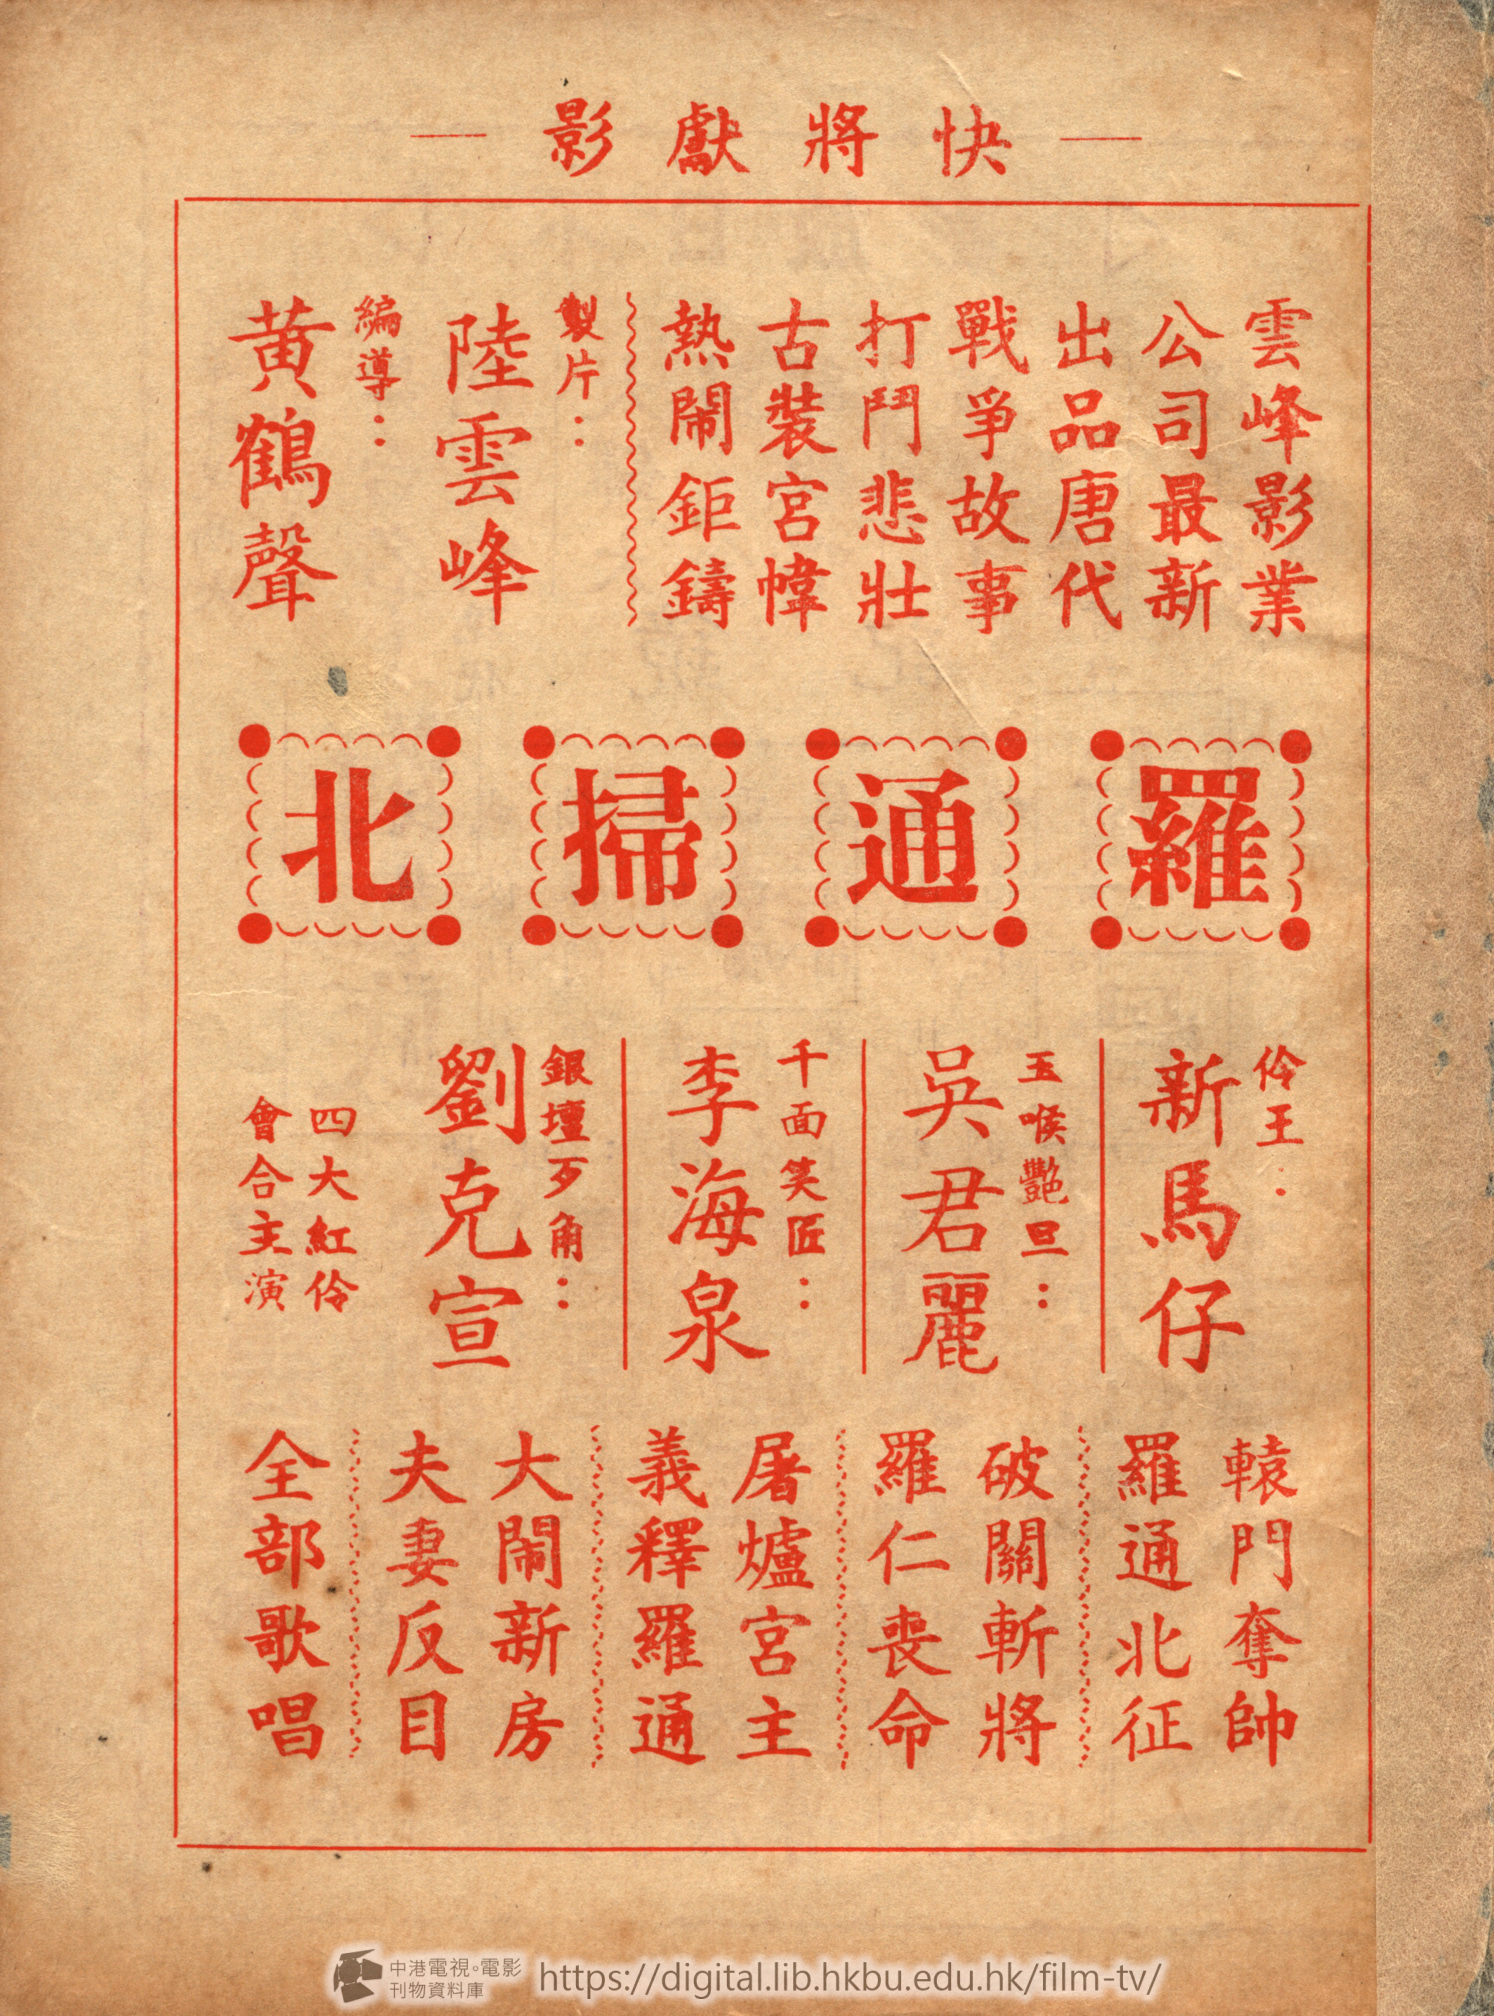 快將獻影
雲峰影業
公司最新
出品唐代
戰爭故事
打鬥悲壯
古裝宮幃
熱鬧鉅鑄
製片：
陸雲峰
編導：
黃鶴聲
羅通掃北
伶王：
新馬仔
玉喉艷旦：
吳君麗
千面笑匠：
李海泉
銀壇歹角：
劉克宣
四大紅伶
會合主演
轅門奪帥
羅通北征
破關斬將
羅仁喪命
屠爐宮主
義釋羅通
大鬧新房
夫妻反目
全部歌唱
中港電視。電影
刊物資料庫
https://digital.lib.hkbu.edu.hk/film-tv/